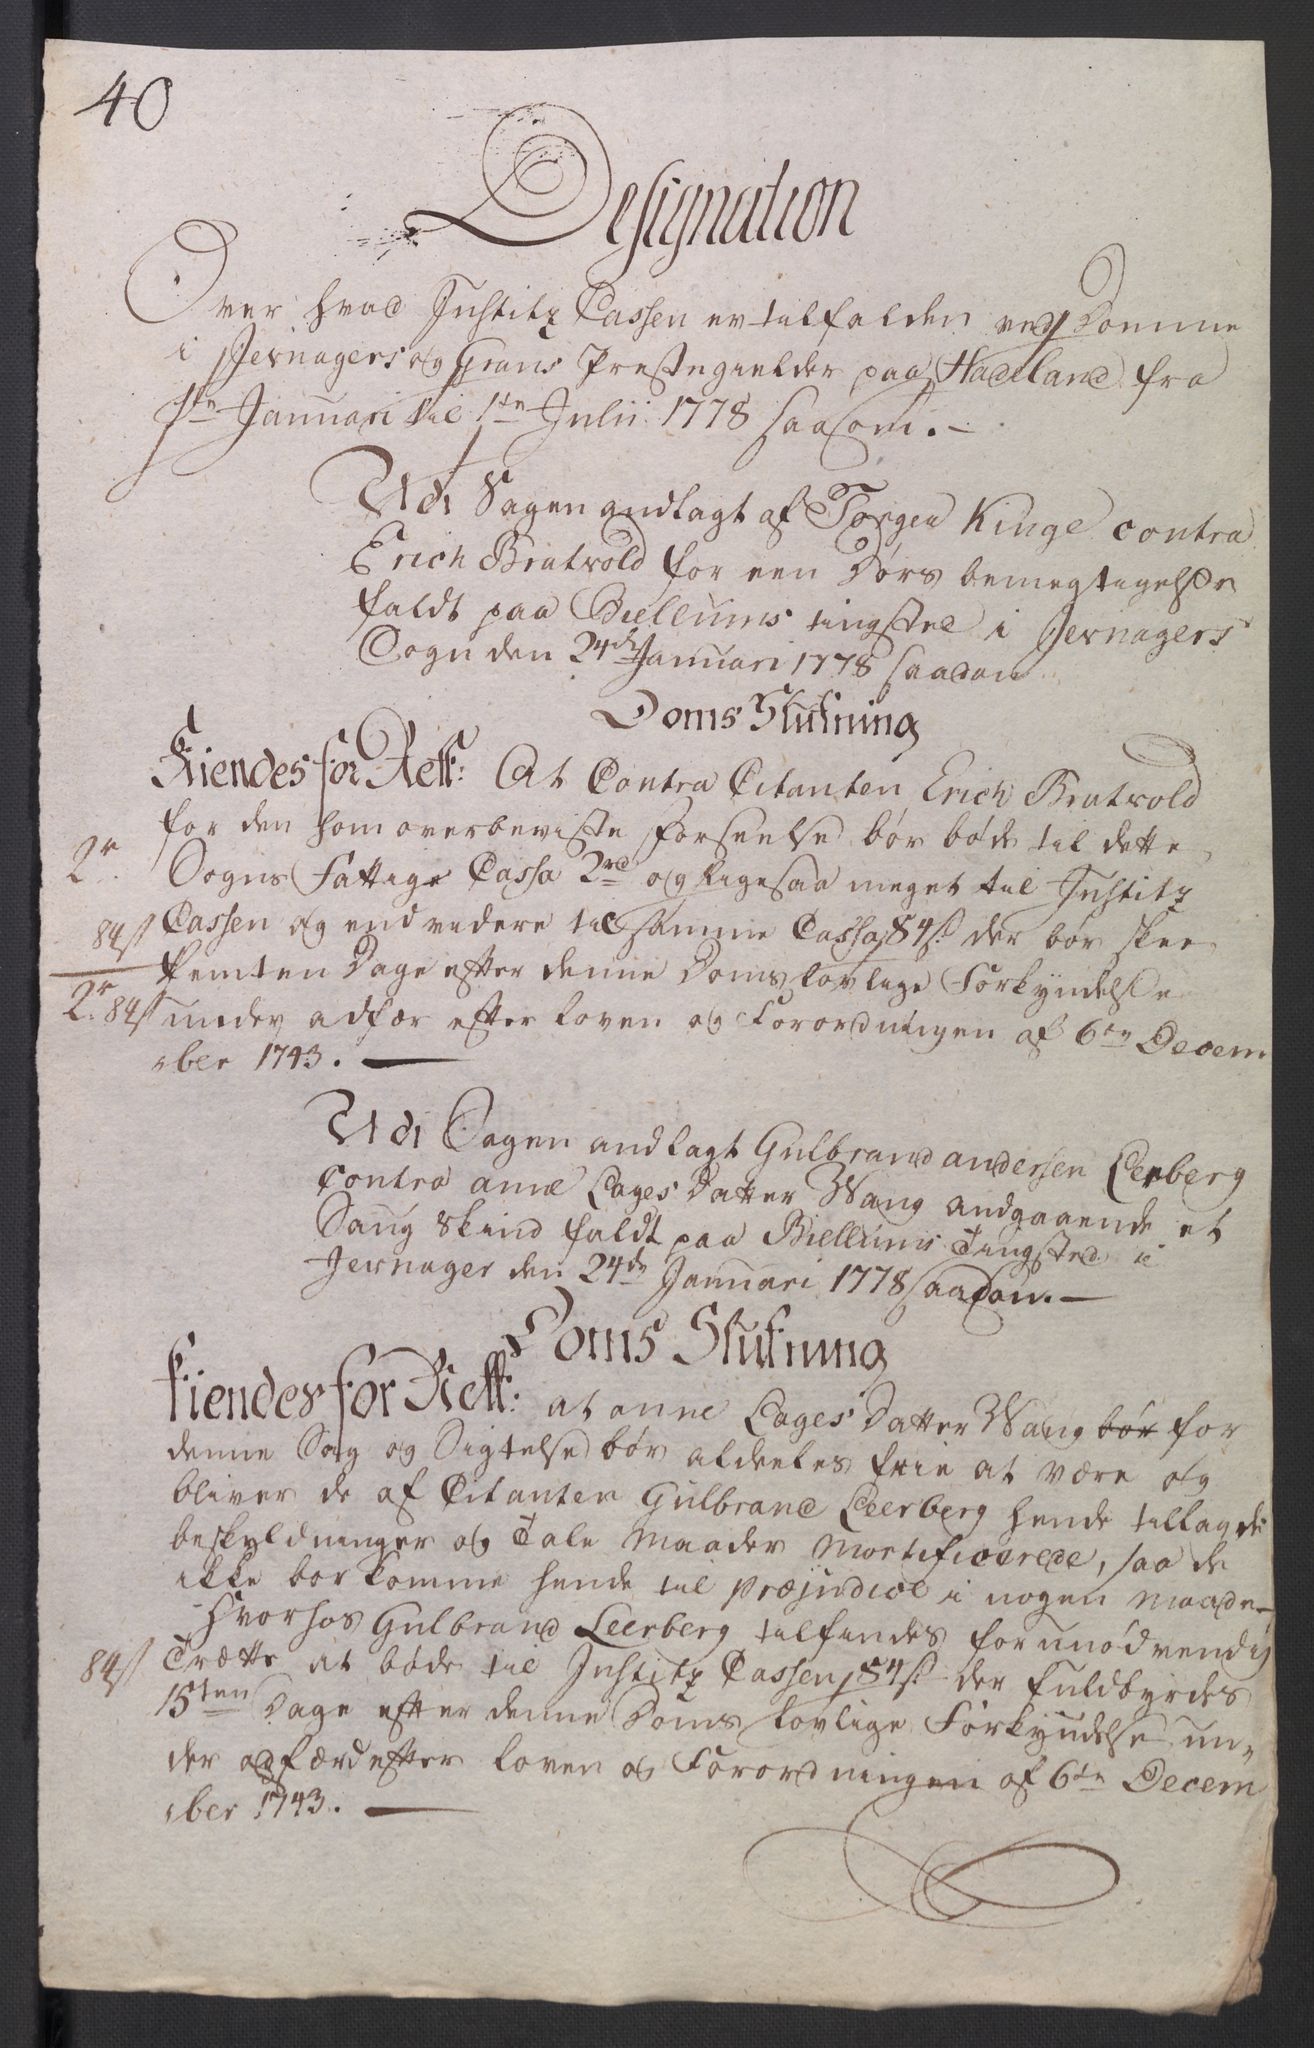 40
Designation
Over hvad Justitz Cassen er tilfalden ved Domme
i Jevnagers og Grans Prestegielder paa Hadeland fra
1te Januari til 1te Julii 1778 saasom. –
Udi Sagen andlagt af Torgen Kinge contra
Erich Bratvold for een Dørs bemegtigelse
faldt paa Biellums tingsted i Jevnagers
Sogn den 24de Januari 1778 saadan
Doms Slutning
Kiendes for Rett: At Contra Citanten Erich Bratvold
for den ham overbeviste forseelse bør bøde til dette
2r
Sogns Fattige Cassa 2rd og ligesaa meget til Justitz
84ß
Cassen og end videre til samme Cassa 84ß der bør skee
femten Dage efter denne Doms lovlige Forkyndelse
2r. 84ß
under adfær efter loven og Forordningen af 6te Decem
ber 1743. —
Udi Sagen andlagt Gulbrand andersen Leerberg
contra anne Lages Datter Wang andgaaende et
Saug Skind faldt paa Biellums Tingsted i
Jevnager den 24de Januari 1778 saadan. —
Doms Slutning
Kiendes for Rett: at anne Lages Datter Wang bør for
denne Sag og Sigtelse bør aldeeles frie at være og
bliver de af Citanten Gulbrand Leerberg hende tillagde
beskyldninger og Tale Maader Mortificerede, saa de
ikke bør komme hende til Præjudice i nogen Maade –
hvorhos Gulbrand Leerberg tilfindes for unødvendig
84ß
Trætte at bøde til Justitz Cassen 84ß der fuldbyrdes
15ten Dage efter denne Doms lovlige Forkyndelse un-
der adfærd efter loven og Forordningen af 6te Decem
ber 1743. —